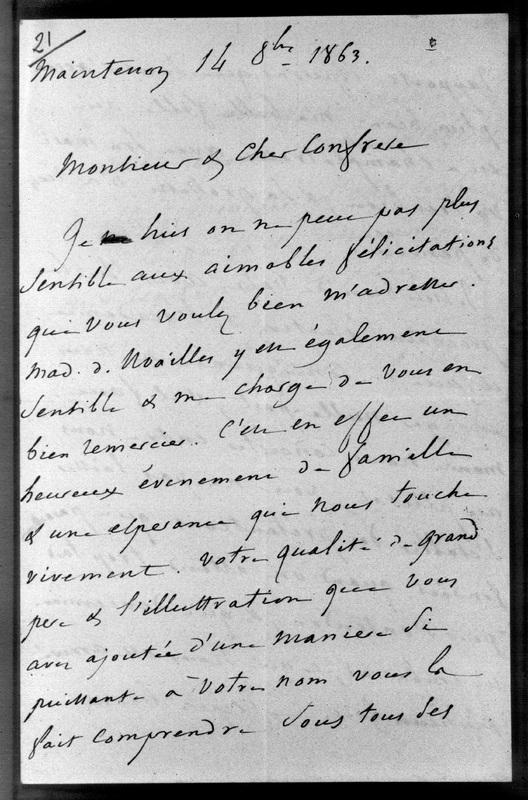 21
Maintenon 14 8bre 1863.
Monsieur & Cher Confrere
Je suis on ne peut pas plus
sensible aux aimables félicitations
que vous voulez bien m'adresser.
Mad. de Noailles y est également
sensible & me charge de vous en
bien remercier. C'est en effet un
heureux évenement de famille
& une esperance qui nous touche
vivement. votre qualité de grand
pere & l'illustration que vous
avez ajoutée d'une maniere si
puissante à votre nom vous la
fait comprendre sous tous ses